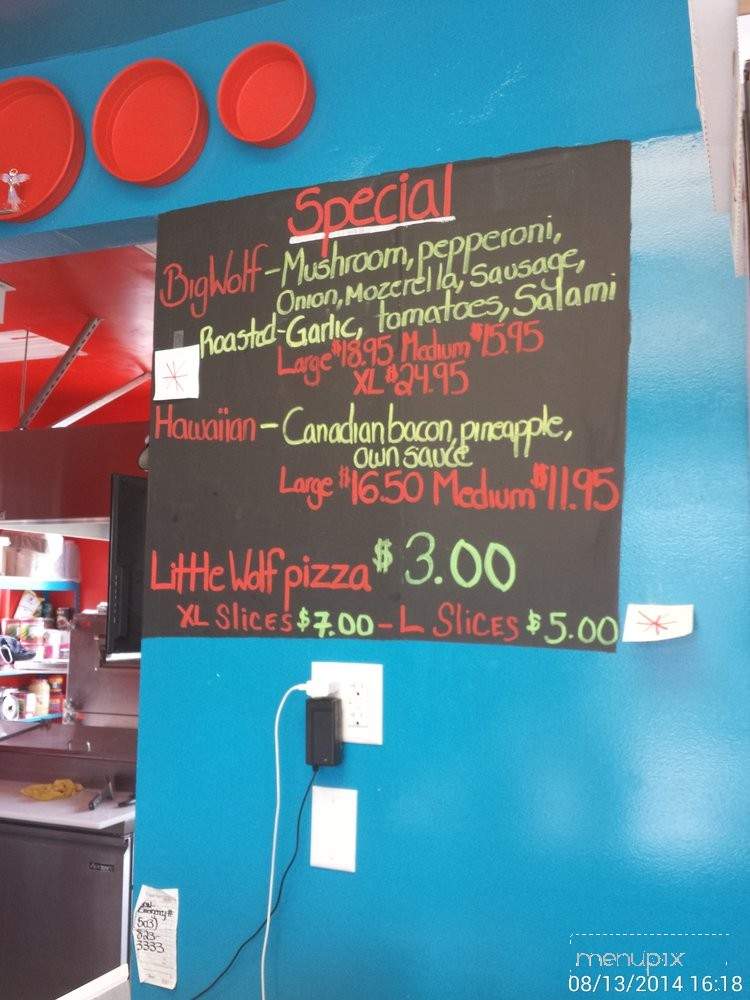 Special
BigWolf - Mushroom, pepperoni,
Onion, Mozerella, Sausage,
Roasted-Garlic, tomatoes, Salami
Large $18.95 Medium $15.95
XL $24.95
Hawaiian - Canadian bacon, pineapple,
own sauce
Large $16.50 Medium $11.95
Little Wolf pizza $3.00
XL Slices $7.00 - L Slices $5.00
503)
823-
3333
menupix
08/13/2014 16:18